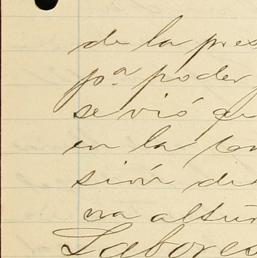 de la pres
p.ª poder
se vió que
en la Com
sión de
na altur
Labores